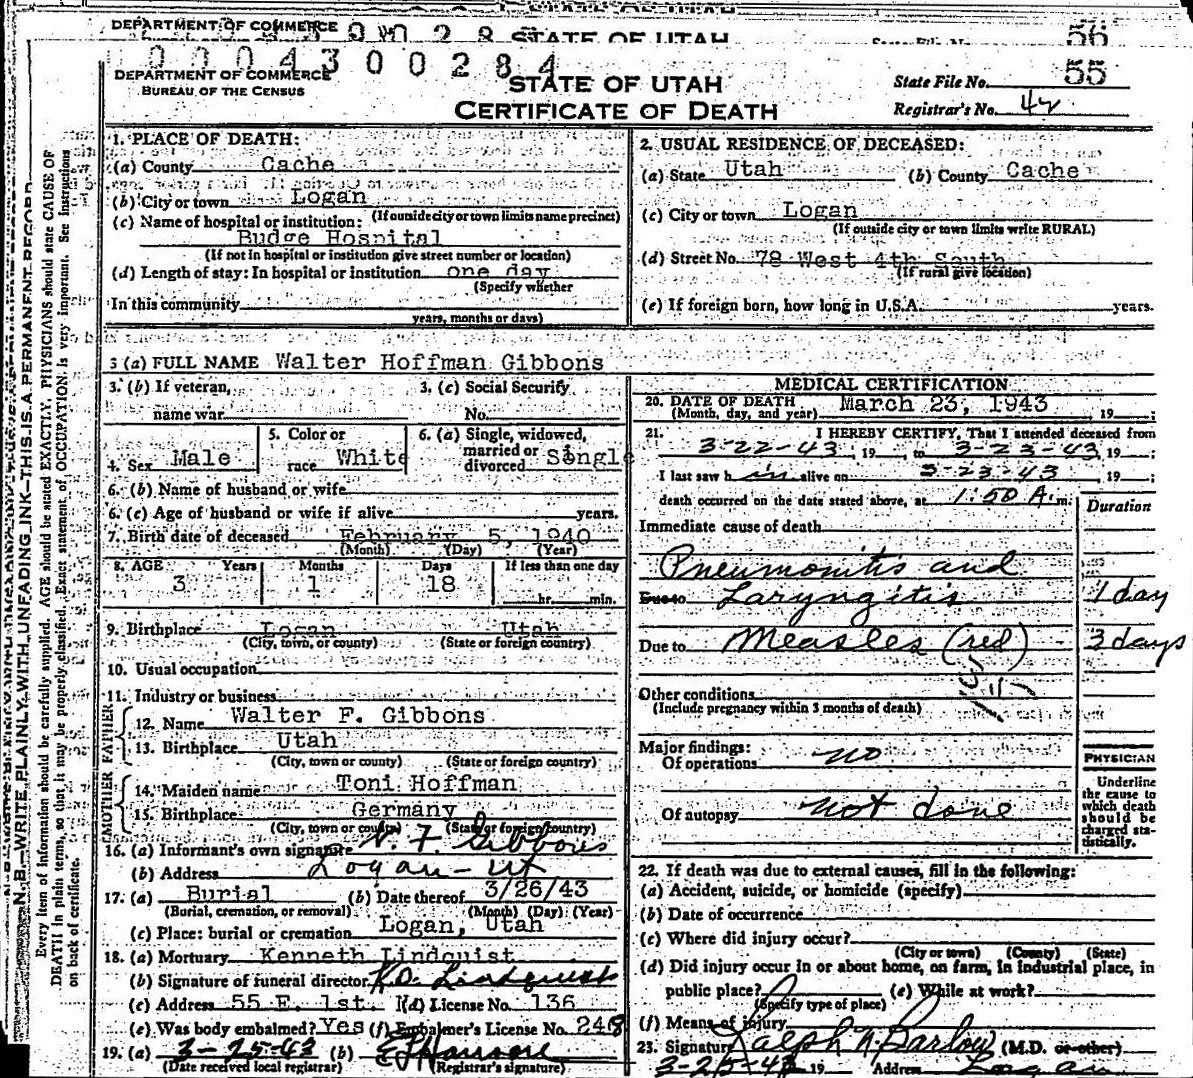 DEPARTMENT OF COMMERCE
STATE OF UTAH
56
0004300284
DEPARTMENT OF COMMERCE
BUREAU OF THE CENSUS
STATE OF UTAH
CERTIFICATE OF DEATH
State File No. 55
Registrar's No. 42
N. B.—WRITE PLAINLY WITH UNFADING INK—THIS IS A PERMANENT RECORD
Every item of information should be carefully supplied. AGE should be stated EXACTLY. PHYSICIANS should state CAUSE OF
DEATH in plain terms, so that it may be properly classified. Exact statement of OCCUPATION is very important. See instructions
on back of certificate.
1. PLACE OF DEATH:
(a) County Cache
(b) City or town Logan
(If outside city or town limits name precinct)
(c) Name of hospital or institution:
Budge Hospital
(If not in hospital or institution give street number or location)
(d) Length of stay: In hospital or institution one day
(Specify whether
In this community
years, months or days)
2. USUAL RESIDENCE OF DECEASED:
(a) State Utah (b) County Cache
(c) City or town Logan
(If outside city or town limits write RURAL)
(d) Street No. 78 West 4th South
(If rural give location)
(e) If foreign born, how long in U.S.A. years.
3 (a) FULL NAME Walter Hoffman Gibbons
3. (b) If veteran,
name war
3. (c) Social Security
No.
4. Sex Male
5. Color or
race White
6. (a) Single, widowed,
married or
divorced Single
6. (b) Name of husband or wife
6. (c) Age of husband or wife if alive years.
7. Birth date of deceased February 5, 1940
(Month) (Day) (Year)
8. AGE Years Months Days If less than one day
3 1 18 hr. min.
9. Birthplace Logan Utah
(City, town, or county) (State or foreign country)
10. Usual occupation
11. Industry or business
FATHER
12. Name Walter F. Gibbons
13. Birthplace Utah
(City, town or county) (State or foreign country)
MOTHER
14. Maiden name Toni Hoffman
15. Birthplace Germany
(City, town or county) (State or foreign country)
16. (a) Informant's own signature W. F. Gibbons
(b) Address Logan - Ut
17. (a) Burial (b) Date thereof 3/26/43
(Burial, cremation, or removal) (Month) (Day) (Year)
(c) Place: burial or cremation Logan, Utah
18. (a) Mortuary Kenneth Lindquist
(b) Signature of funeral director K.D. Lindquist
(c) Address 55 E. 1st. N (d) License No. 136
(e) Was body embalmed? Yes (f) Embalmer's License No. 248
19. (a) 3-25-43 (b)
(Date received local registrar) (Registrar's signature)
MEDICAL CERTIFICATION
20. DATE OF DEATH
(Month, day, and year) March 23, 1943, 19 ;
21. I HEREBY CERTIFY, That I attended deceased from
3-22-43, 19 to 3-23-43, 19 ;
I last saw him alive on 3-23-43, 19 ;
death occurred on the date stated above, at 1:50 A. m.
Duration
Immediate cause of death
Pneumonitis and
Due to Laryngitis 1 day
Due to Measles (red) 3 days
Other conditions
(Include pregnancy within 3 months of death)
Major findings:
Of operations no
Of autopsy not done
PHYSICIAN
Underline
the cause to
which death
should be
charged sta-
tistically.
22. If death was due to external causes, fill in the following:
(a) Accident, suicide, or homicide (specify)
(b) Date of occurrence
(c) Where did injury occur?
(City or town) (County) (State)
(d) Did injury occur in or about home, on farm, in industrial place, in
public place? (e) While at work?
(Specify type of place)
(f) Means of injury
23. Signature Ralph N. Barlow (M.D. or other)
3-25-43 19 Address Logan